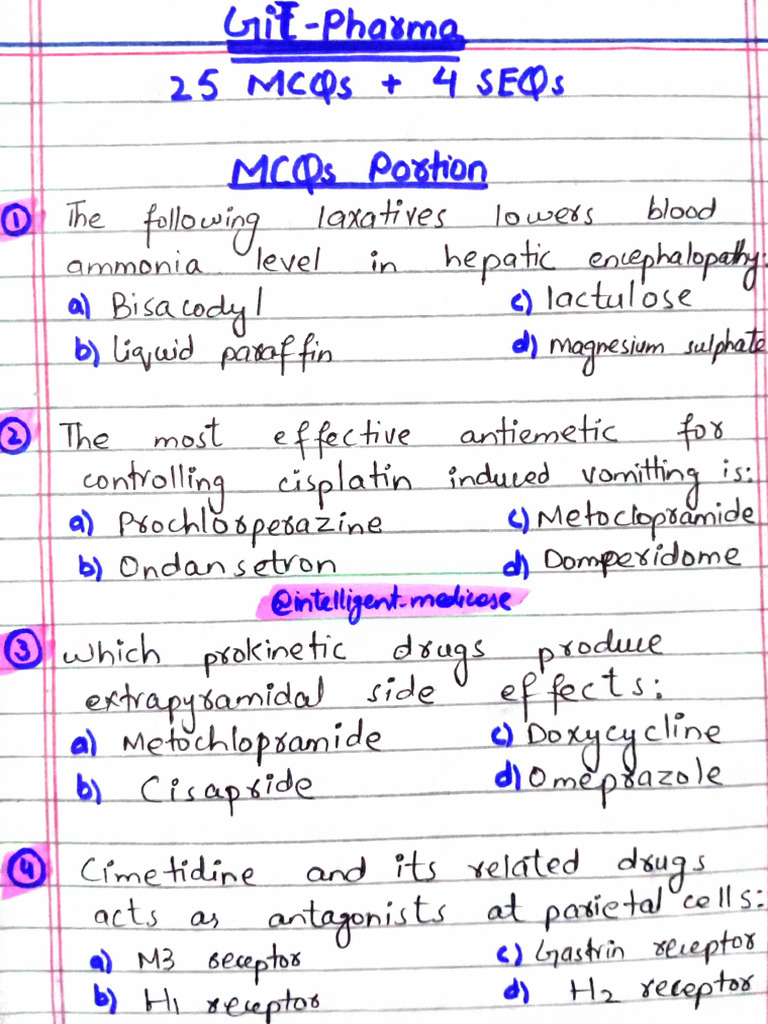 GIT-Pharma
25 MCQs + 4 SEQs
MCQs Portion
1 The following laxatives lowers blood
ammonia level in hepatic encephalopathy:
a) Bisacodyl c) lactulose
b) liquid paraffin d) magnesium sulphate
2 The most effective antiemetic for
controlling cisplatin induced vomitting is:
a) Prochlorperazine c) Metoclopramide
b) Ondansetron d) Domperidome
@intelligent-medicose
3 which prokinetic drugs produce
extrapyramidal side effects:
a) Metochlopramide c) Doxycycline
b) Cisapride d) Omeprazole
4 Cimetidine and its related drugs
acts as antagonists at parietal cells:
a) M3 receptor c) Gastrin receptor
b) H1 receptor d) H2 receptor